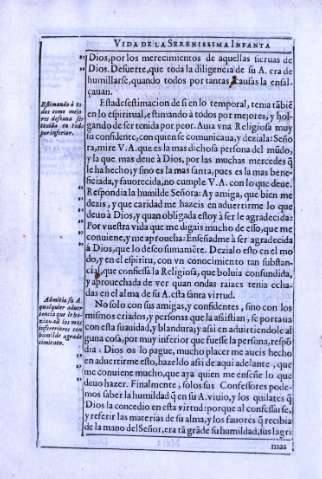 VIDA DE LA SERENISSIMA INFANTA
Dios, por los merecimientos de aquellas sieruas de
Dios. De suerte, que toda la diligencia de su A. era de
humillarse, quando todos por tantas causas la ensal-
çauan.
Estimando à to
dos como mejo
res
por inferior.
Esta desestimacion de si en lo temporal, tenia tãbiẽ
en lo espiritual, estimando à todos por mejores, y hol-
gando de ser tenida por peor. Auia vna Religiosa muy
su confidente, con quien se comunicaua, y dezia la: Seño
ra, mire V. A. que es la mas dichosa persona del mũdo,
y la que mas deue à Dios, por las muchas mercedes q̃
le ha hecho; y sino es la mas santa, pues es la mas bene-
ficiada, y fauorecida, no cumple V. A. con lo que deue.
Respondia la humilde Señora: Ay amiga, que bien me
dezis, y que caridad me hazeis en aduertirme lo que
deuo à Dios, y quan obligada estoy à ser le agradecida:
Por vuestra vida que me digais mucho de esso, que me
conuiene, y me aprouecha: Enseñadme à ser agradecida
à Dios, que lo desseo sumamẽte. Dezialo esto en el mo
do, y en el espiritu, con vn conocimiento tan substan-
cial, que confiessa la Religiosa, que boluia confundida,
y aprouechada de ver quan ondas raizes tenia echa-
das en el alma de su A. esta santa virtud.
Admitia su A.
qualquier aduer
tencia que le ha
zian aũ los mas
inferiores con
humilde agrade
cimiento.
No solo con sus amigas, y confidentes, sino con los
mismos criados, y personas que la assistian, se portaua
con esta suauidad, y blandura; y assi en aduirtiendole al
guna cosa, por muy inferior que fuesse la persona, respõ
dia: Dios os lo pague, mucho placer me aueis hecho
en aduertirme esto, hazeldo assi de aqui adelante, que
me conuiene mucho, que aya quien me enseñe lo que
deuo hazer. Finalmente, solos sus Confessores pode-
mos saber la humildad q̃ en su A. viuio, y los quilates q̃
Dios la concedio en esta virtud: porque al confessarse,
y referir las materias de su alma, y los fauores q̃ recibia
de la mano del Señor, era tã grãde su humildad, sus lagri
mas